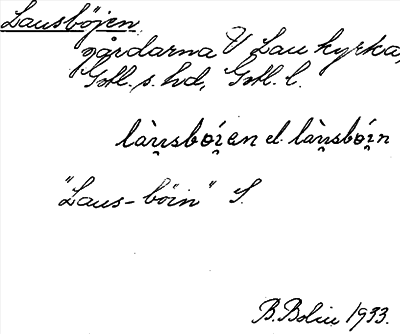 Lausbøjen
gårdarna V Lau kyrka,
Gotl. s. hd, Gotl. l.
làu̯sbøi̯en el. làu̯sbøi̯n
"Laus-böin" S.
B. Bolin 1933.